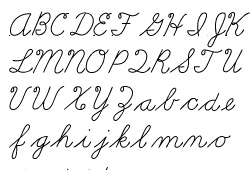 ABCDEF GHIJK
LMNOPQRSTU
VWXYZabcde
fghijklmno